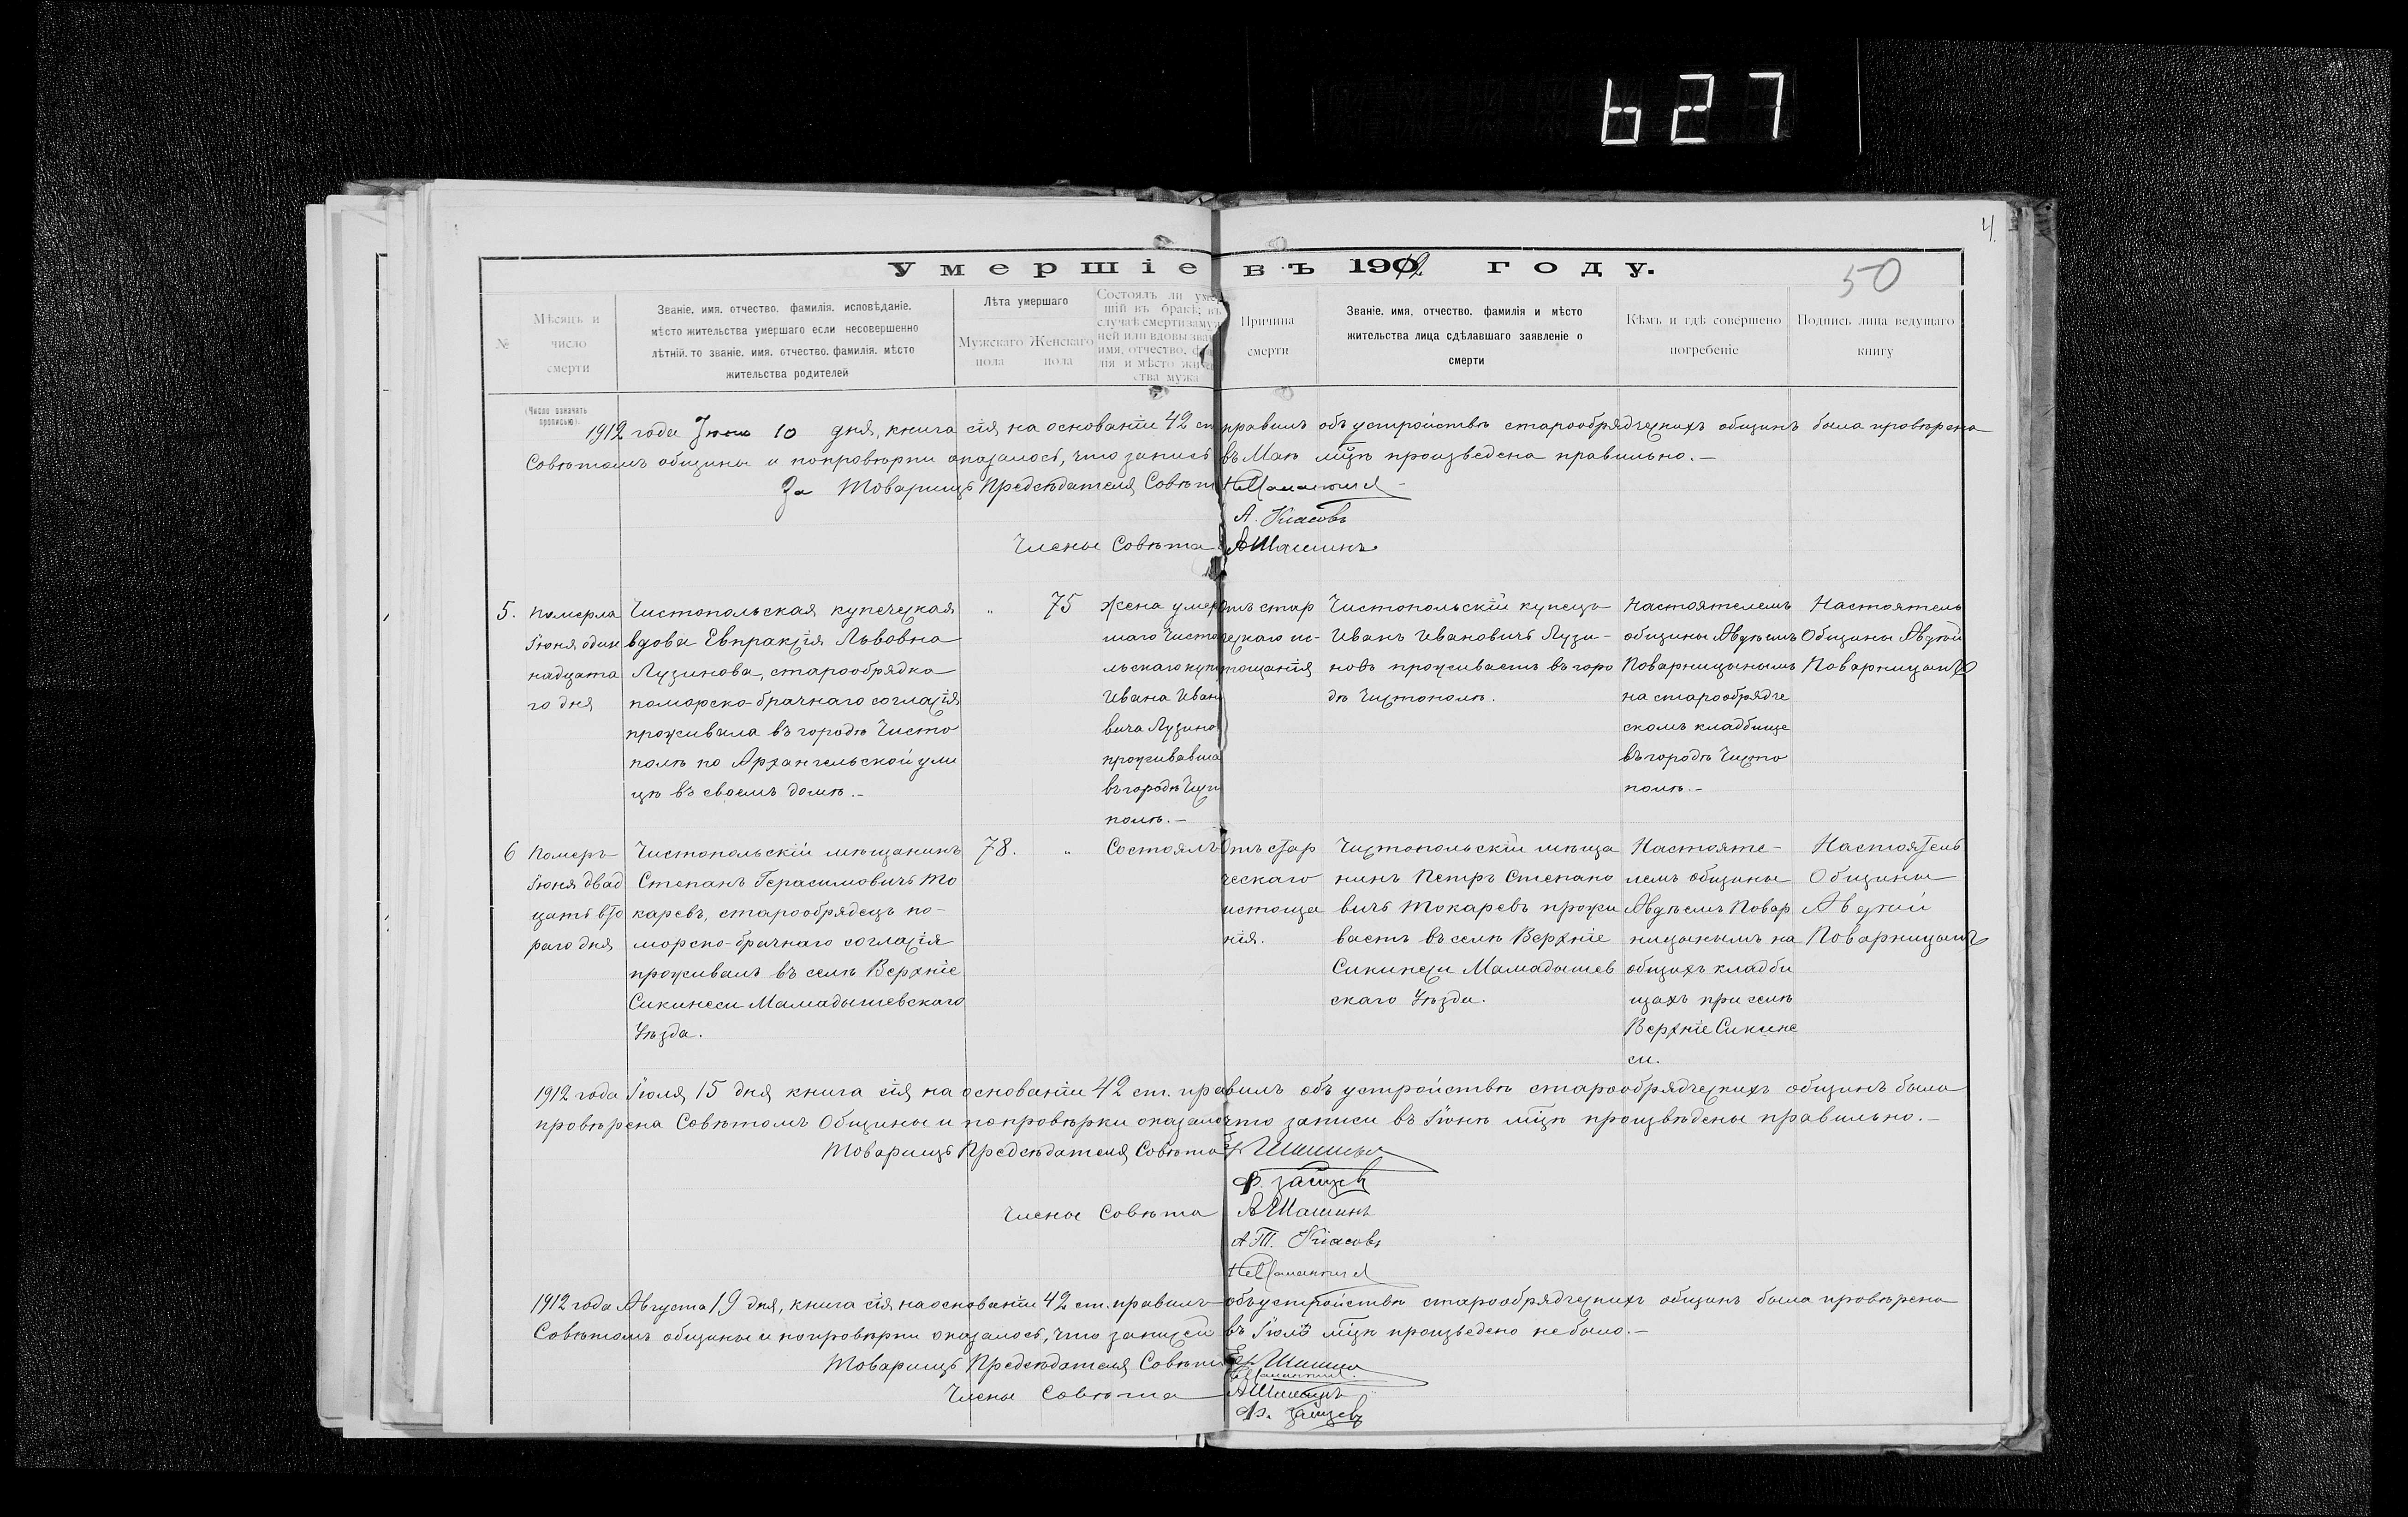 627
4.
50
Умершіе въ 1912 году.
№
Мѣсяцъ и
число
смерти
(Число означать
прописью).
Званіе. имя. отчество. фамилія. исповѣданіе.
мѣсто жительства умершаго если несовершенно
лѣтній. то званіе. имя. отчество. фамилія. мѣсто
жительства родителей
Лѣта умершаго
Мужскаго
пола
Женскаго
пола
Состоялъ ли умер
шій въ бракѣ; въ
случаѣ смерти замуж
ней или вдовы зван
имя, отчество, фам
лія и мѣсто жител
ства мужа
Причина
смерти
Званіе, имя, отчество, фамилія и мѣсто
жительства лица сдѣлавшаго заявленіе о
смерти
Кѣмъ и гдѣ совершено
погребеніе
Подпись лица ведущаго
книгу
1912 года Іюня 10 дня, книга сія на основаніи 42 ст правилъ объ устройствѣ старообрядческихъ общинъ была провѣрена
Совѣтомъ общины и попровѣрки оказалось, что запись въ Маѣ мцѣ произведена правильно. —
За Товарищъ Предсѣдателя Совѣта
А. Класовъ
Члены Совѣта А Шашинъ
5.
Померла
Іюня один
надцата
го дня
Чистопольская купеческая
вдова Евпраксія Львовна
Лузинова, старообрядка
поморско-брачнаго согласія
проживала въ городѣ Чисто
полѣ по Архангельской ули
цѣ въ своемъ домѣ. –
"
75
Жена умер
шаго Чисто
льскаго куп
Ивана Иван
вича Лузино
проживавша
въ городѣ Чист
полѣ. –
Отъ стар
ческаго ис-
тощанія
Чистопольскій купецъ
Иванъ Ивановичъ Лузи-
новъ проживаетъ въ горо
дѣ Чистополѣ.
Настоятелемъ
общины Авдѣемъ
Поварницынымъ
на старообрядче
скомъ кладбище
въ городѣ Чисто
полѣ. –
Настоятель
Общины Авдѣй
Поварницынъ
6
Померъ
Іюня двад
цать вто
раго дня
Чистопольскій мѣщанинъ
Степанъ Герасимовичъ То
каревъ, старообрядецъ по-
морско-брачнаго согласія
проживалъ въ селѣ Верхніе
Сикинеси Мамадышевскаго
Уѣзда.
78.
"
Состоялъ
Отъ стар
ческаго
истоще
нія.
Чистопольскій мѣща
нинъ Петръ Степано
вичъ Токаревъ прожи
ваетъ въ селѣ Верхніе
Сикинеси Мамадышев
скаго Уѣзда.
Настояте-
лемъ общины
Авдѣемъ Повар
ницынымъ на
общихъ кладби
щахъ при селѣ
Верхніе Сикине
си.
Настоятель
Общины
Авдѣй
Поварницынъ
1912 года Іюля 15 дня книга сія на основаніи 42 ст. правилъ объ устройствѣ старообрядческихъ общинъ была
провѣрена Совѣтомъ Общины и попровѣрки оказалось что записи въ Іюнѣ мцѣ произвѣдены правильно. –
Товарищъ Предсѣдателя Совѣта
Ф. Зайцев
Члены Совѣта А Шашинъ
А. Т. Класовъ
1912 года Августа 19 дня, книга сія на основаніи 42 ст. правилъ объ устройствѣ старообрядческихъ общинъ была провѣрена
Совѣтомъ общины и попровѣрки оказалось, что записей въ Іюлѣ мцѣ произведено не было. –
Товарищъ Предсѣдателя Совѣта
Члены Совѣта А Шашинъ
Ф. Зайцевъ